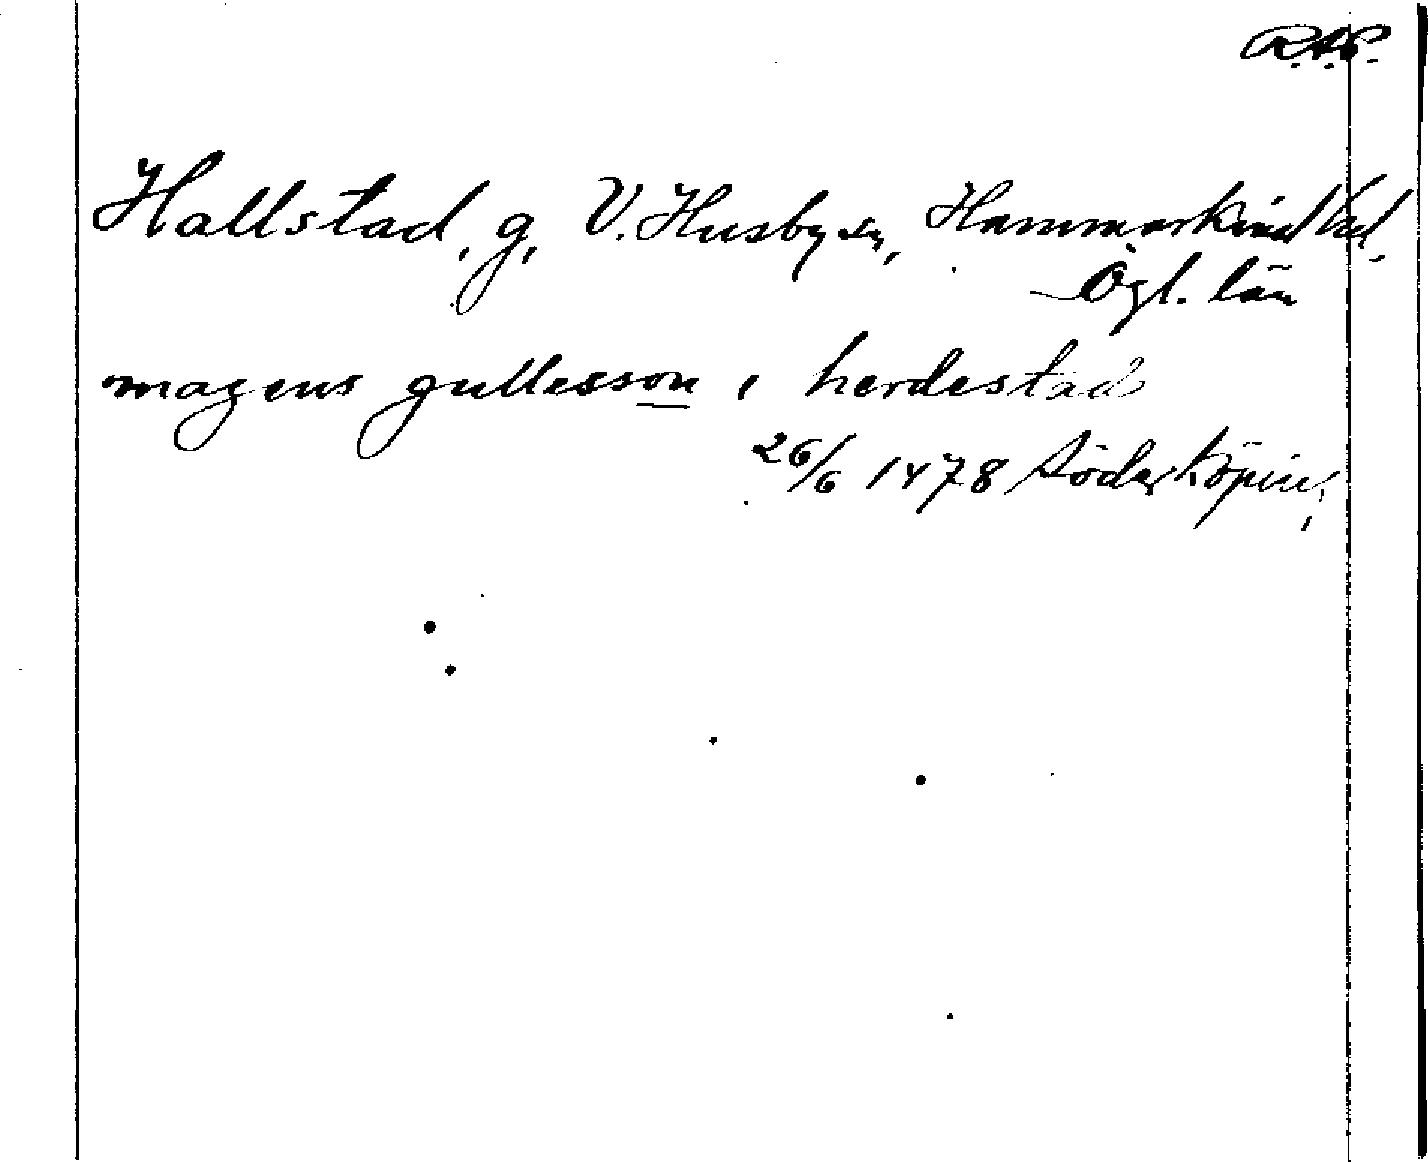 R.A.P.
Hallstad, g, V. Husby sn, Hammarkind hd,
Ögl. län
magens gullesson i herdestad
26/6 1478 Söderköping